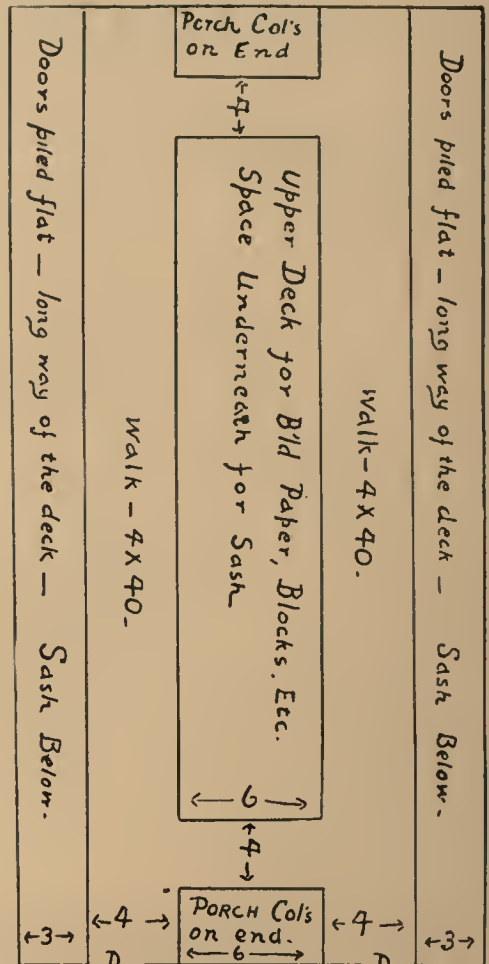 Porch Col's
on End
←4→
Doors piled flat — long way of the deck — Sash Below.
Walk — 4 X 40.
Upper Deck for B'ld Paper, Blocks. Etc.
Space Underneath for Sash
Walk — 4 X 40.
Doors piled flat — long way of the deck — Sash Below.
← 6 →
←4→
←3→
←4→
PORCH Col's
on end.
← 6 →
←4→
←3→